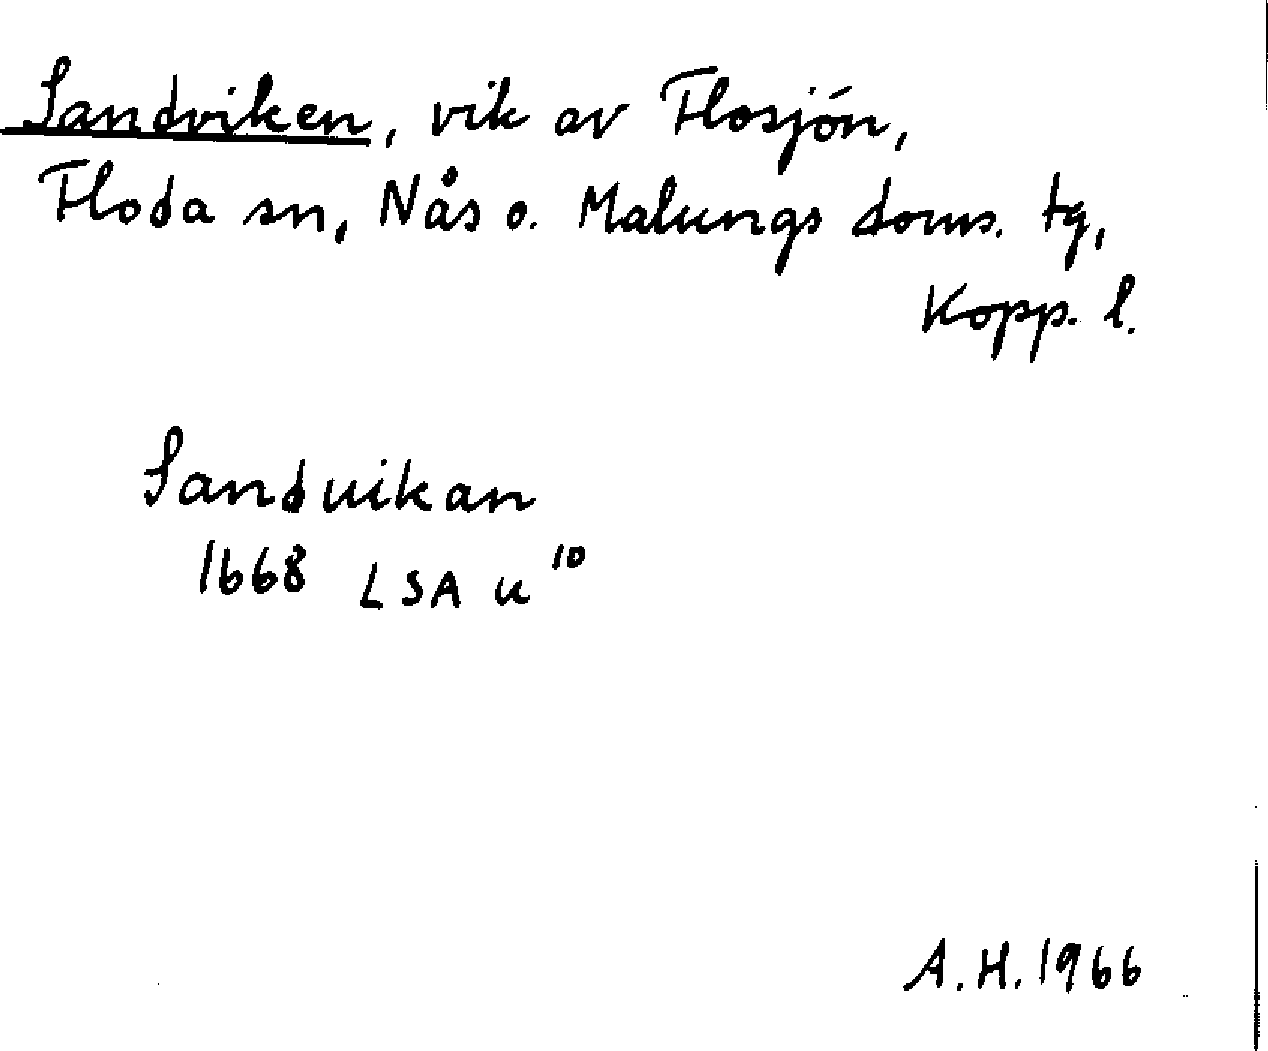 Sandviken, vik av Flosjön,
Floda sn, Nås o. Malungs doms. tg,
Kopp. l.
Sanduikan
1668 LSA u 10
A.H. 1966